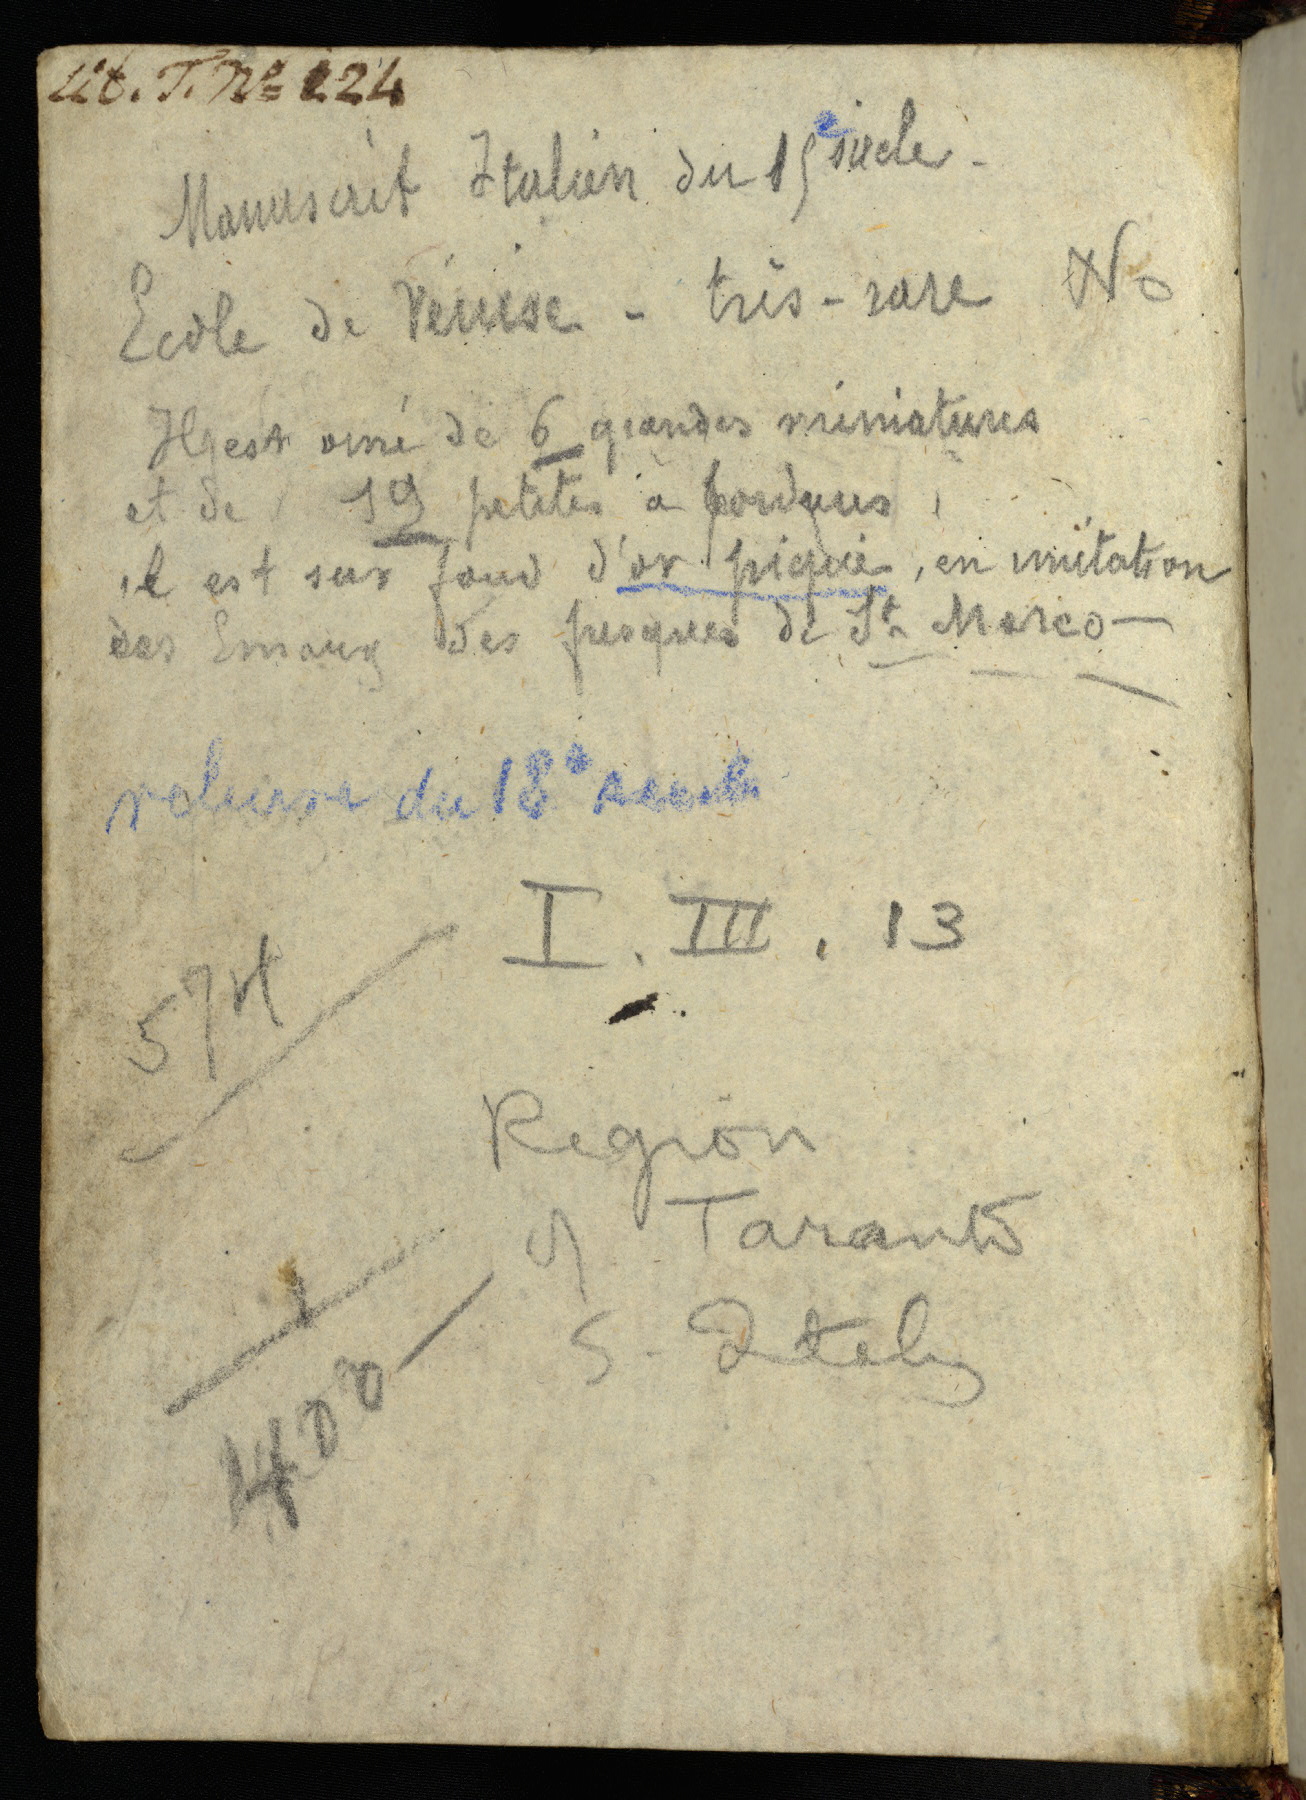 Lit. T. Nº 224
Manuscrit Italien du 15e siecle -
Ecole de Venise - très-rare No
Il est orné de 6 grandes miniatures
et de 19 petites a
il est sur fond d'or piqué, en imitation
des Emaux des fresques de St. Marco
reliure du 18e siecle
I. III. 13
57
Region
of Taranto
S. Italy
1400